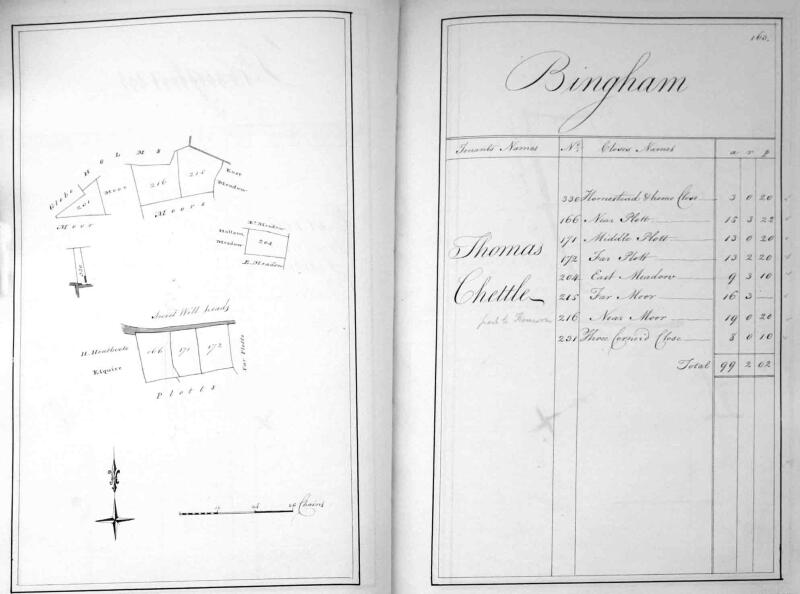 Glebe HOLMS
Moor
201
Moor
216
215
East
Meadow
Moors
Meadow
Hallam
Meadow
204
E. Meadow
330
Sweet Well Leads
H. Heathcote
Esquire
166
171
172
Far Plotts
Plotts
Chains
160.
Bingham
Tenants Names No. Closes Names a r p
330 Homestead & home Close 3 0 20
166 Near Plott 15 3 22
171 Middle Plott 13 0 20
172 Far Plott 13 2 20
204 East Meadow 9 3 10
215 Far Moor 16 3 —
216 Near Moor 19 0 20
231 Three Corner'd Close 8 0 10
Thomas
Chettle
Total 99 2 02